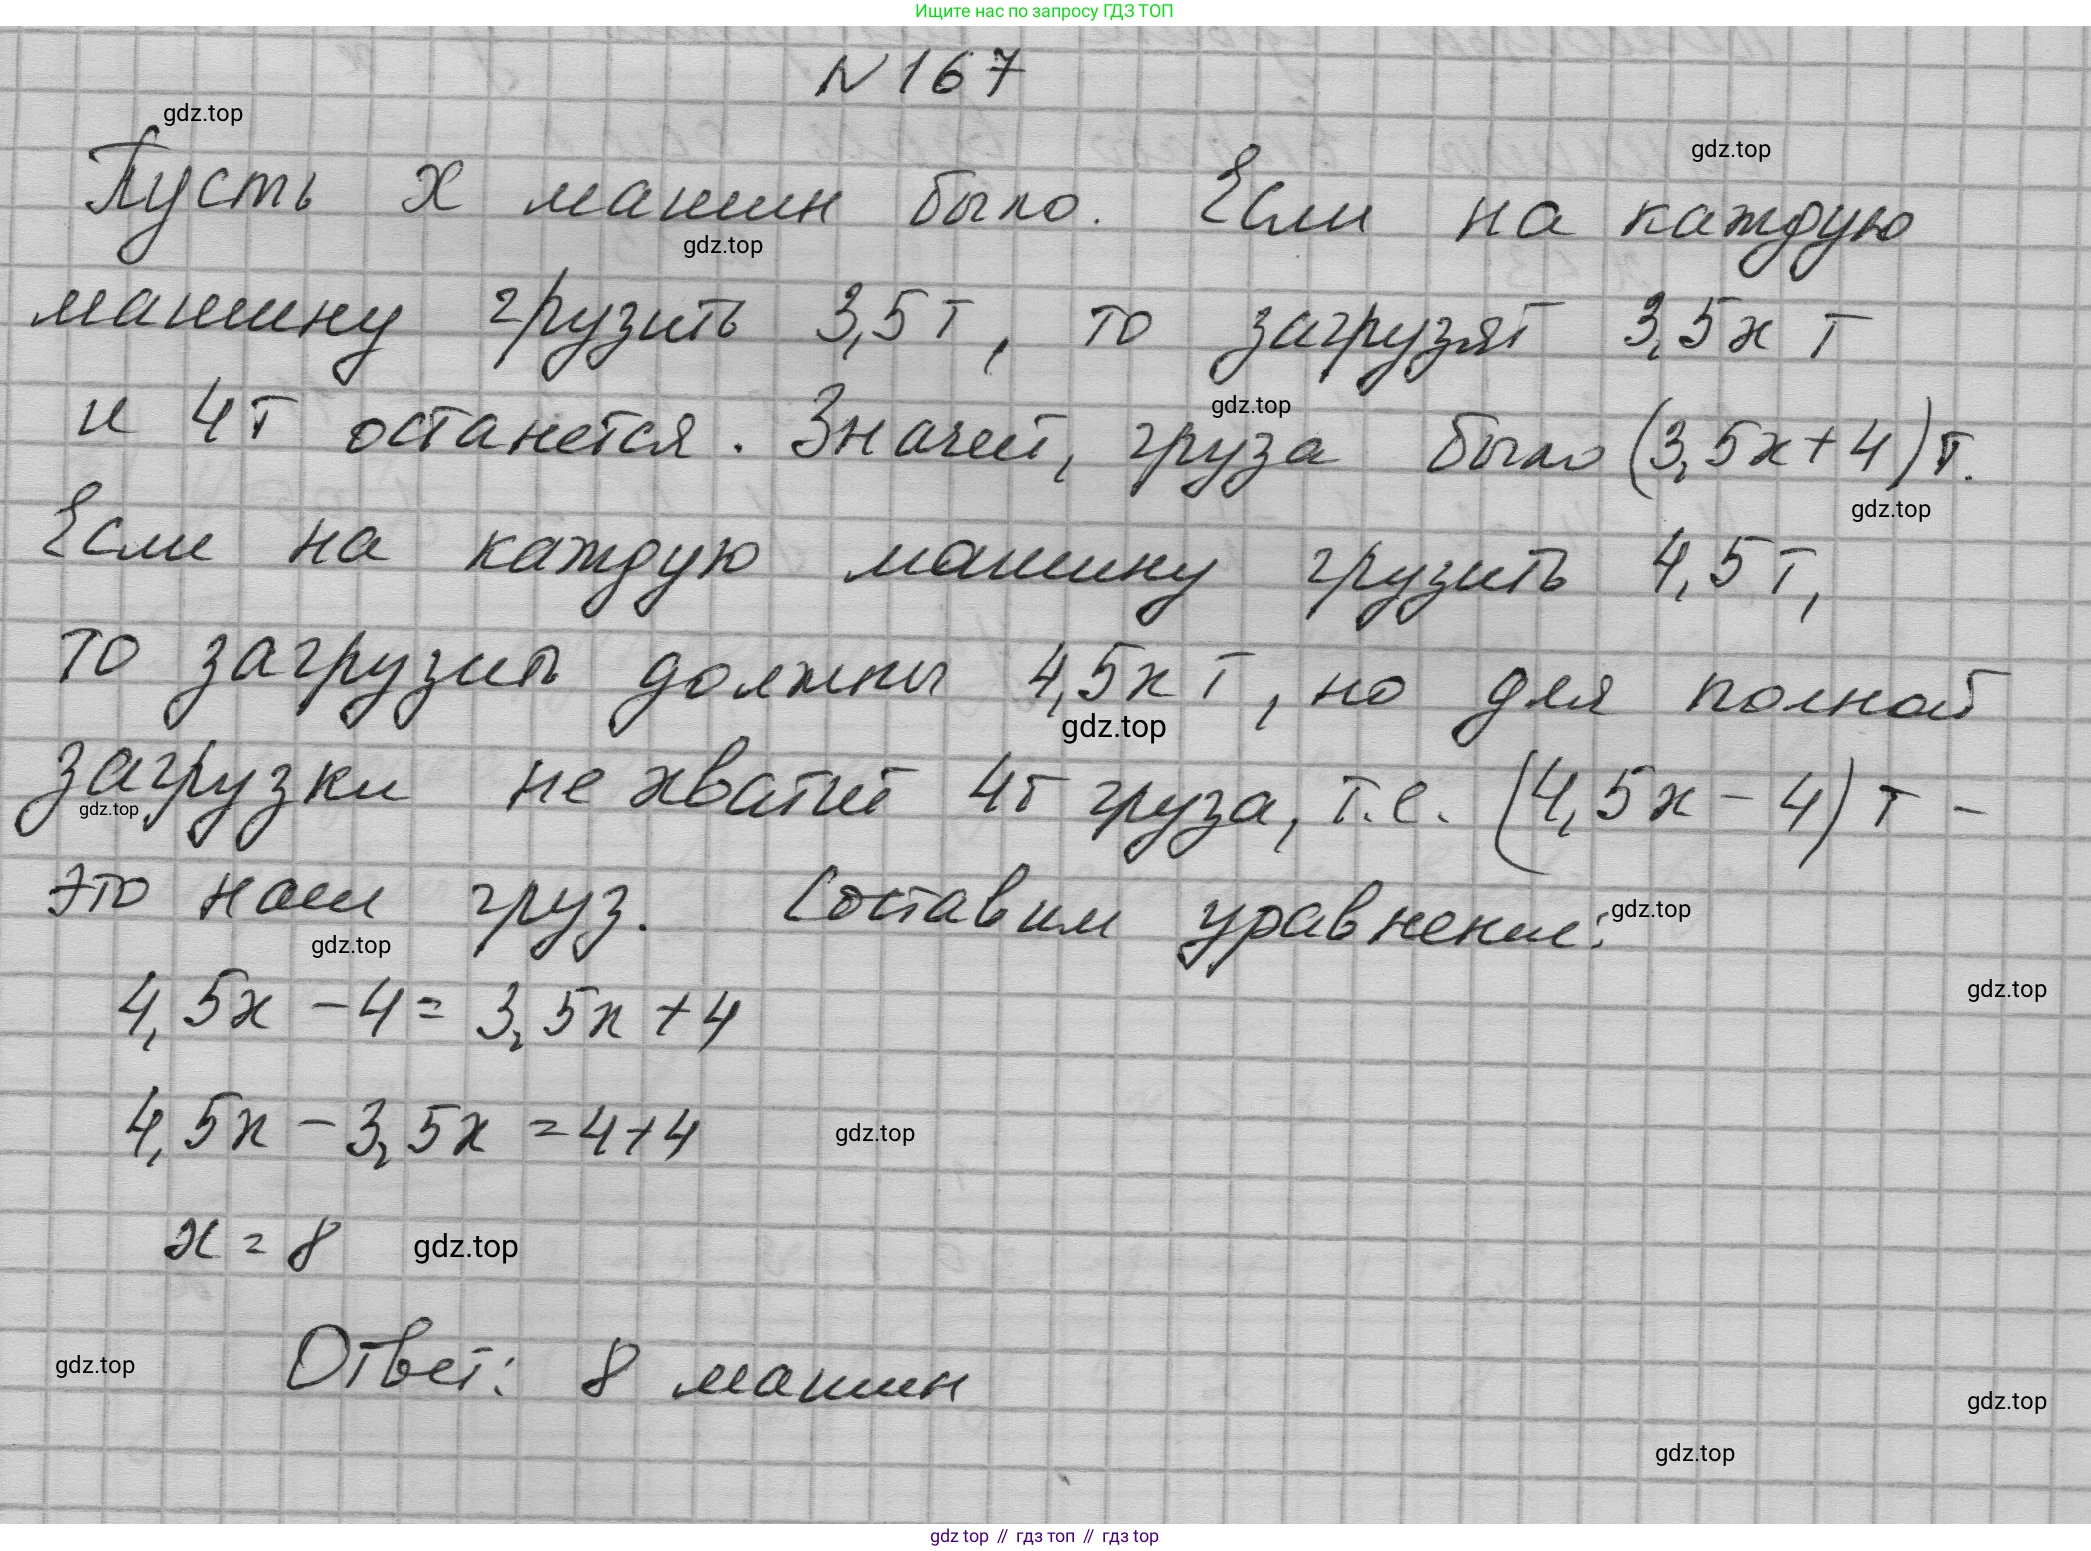 Ищите нас по запросу ГДЗ ТОП
N 167
gdz.top
gdz.top
Пусть x машин было. Если на каждую
gdz.top
машину грузить 3,5 т, то загрузят 3,5x т
gdz.top
и 4т останется. Значит, груза было (3,5x+4) т.
gdz.top
Если на каждую машину грузить 4,5 т,
то загрузить должны 4,5x т, но для полной
gdz.top
загрузки не хватит 4т груза, т.е. (4,5x - 4) т -
gdz.top
это наш груз. Составим уравнение:
gdz.top
gdz.top
gdz.top
4,5x - 4 = 3,5x + 4
4,5x - 3,5x = 4+4
gdz.top
x = 8
gdz.top
gdz.top
Ответ: 8 машин
gdz.top
gdz.top
gdz top // гдз топ // гдз top